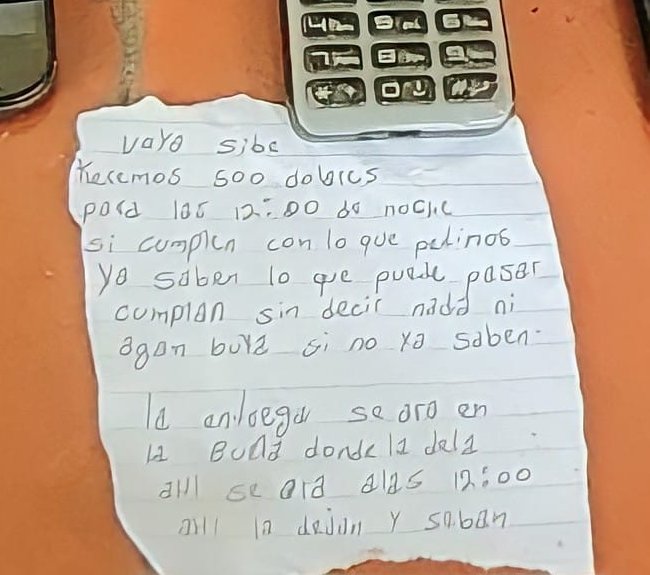 4
7
8
9
0
#
vaYa sibe
kesemos 500 dolores
para las 12:00 de noche
si cumplen con lo que pedimos
ya saben lo que puede pasar
cumplan sin decir nada ni
agan buya si no ya saben.
la se ara en
la donde la
alli se ara alas 12:00
alli la dejan y saban